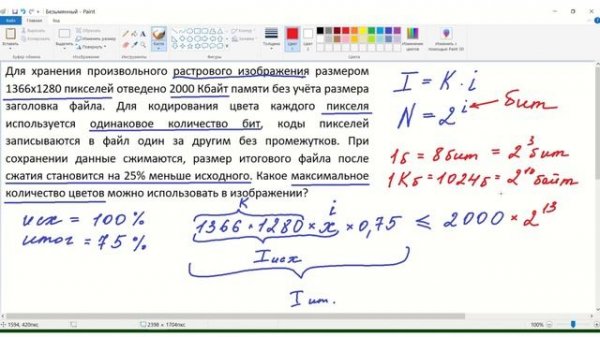 Безымянный - Paint
Файл Главная Вид
Вставить
Выделить
Кисти
Толщина
Цвет 1
Цвет 2
Изменение цветов
Изменить с помощью Paint 3D
Буфер обмена Изображение Инструменты Фигуры Цвета
Для хранения произвольного растрового изображения размером
1366х1280 пикселей отведено 2000 Кбайт памяти без учёта размера
заголовка файла. Для кодирования цвета каждого пикселя
используется одинаковое количество бит, коды пикселей
записываются в файл один за другим без промежутков. При
сохранении данные сжимаются, размер итогового файла после
сжатия становится на 25% меньше исходного. Какое максимальное
количество цветов можно использовать в изображении?
I = K · i
N = 2^i бит
1б = 8бит = 2^3 бит
1Кб = 1024б = 2^10 байт
исх = 100%
итог = 75%
K i
1366 * 1280 * x * 0,75 ≤ 2000 * 2^13
I исх
I ит.
1594, 420пкс
2398 × 1704пкс
100%